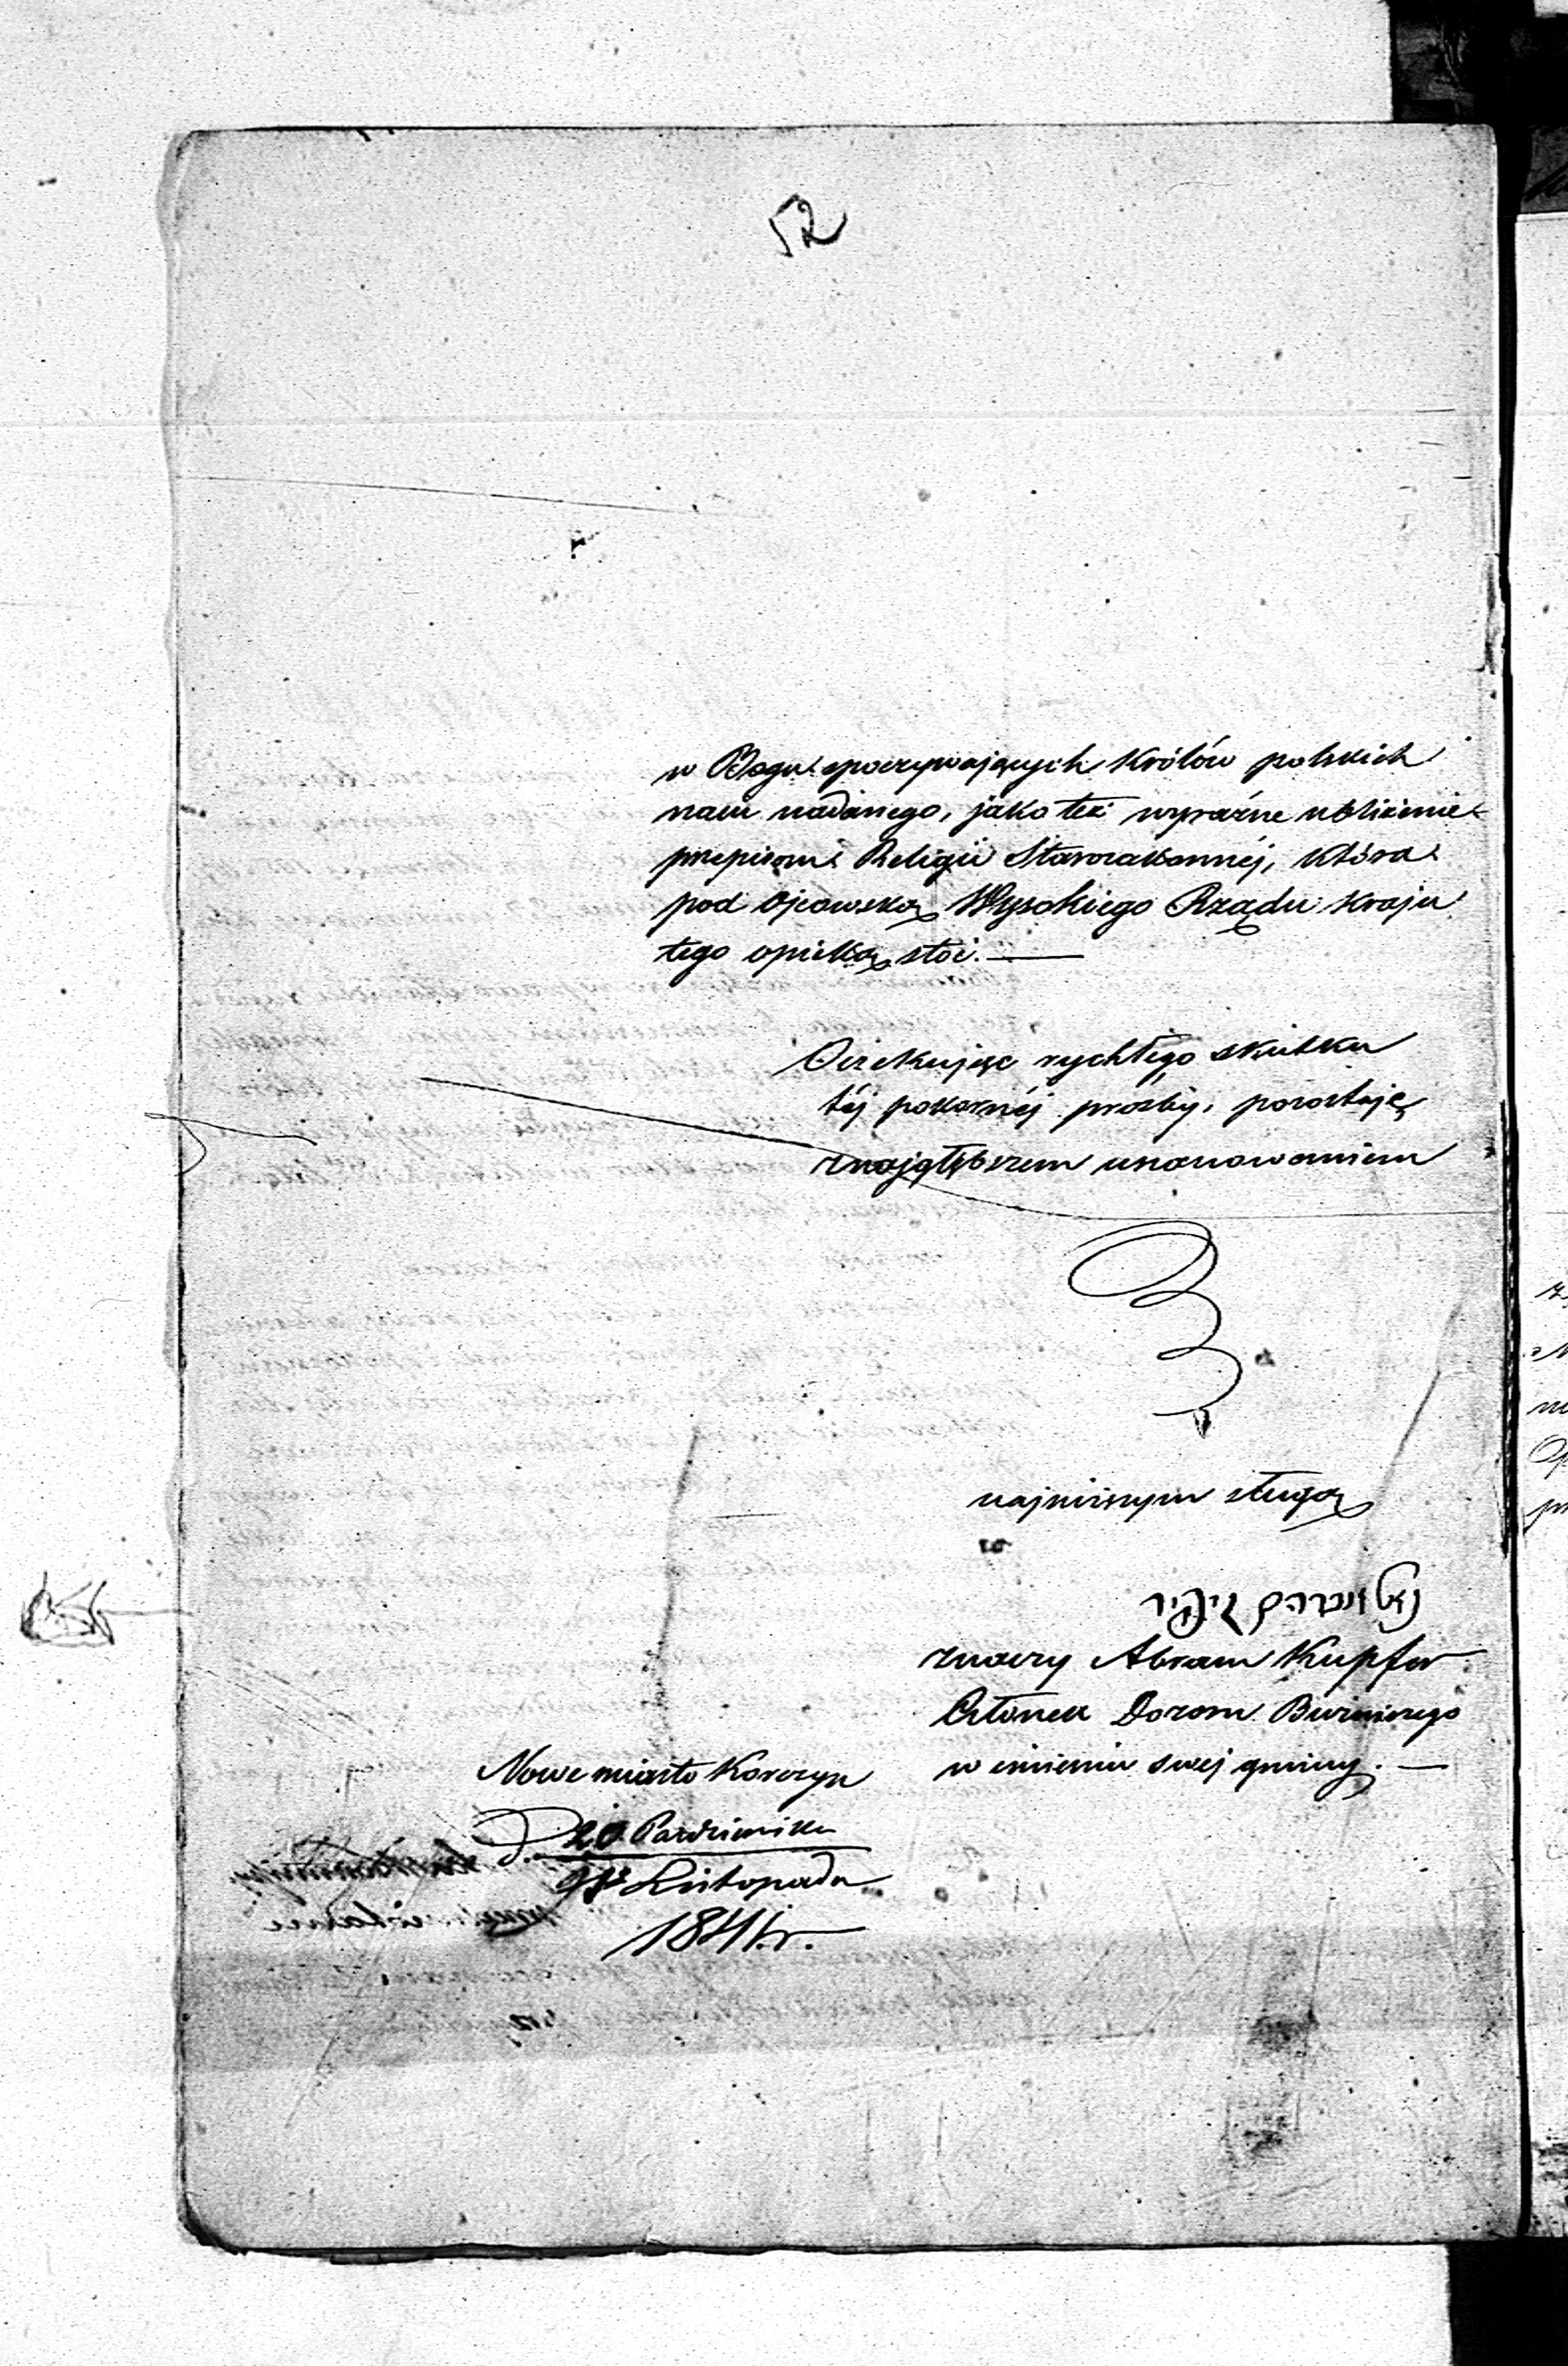 52
w Bogu spoczywających Królów polskich
nam nadanego, jako też wyraźne ubliżenie
przepisom Religii Starozakonnéj, która
pod Ojcowską Wysokiego Rządu Kraju
tego opieką stoi. —
Oczekując rychłego skutku
téj pokornéj prośby, pozostaję
z najgłębszem uszanowaniem
najniższym sługą
znaczy Abram Kupfer
Członek Dozoru Bużniczego
w imieniu swéj gminy. —
Nowe miasto Korczyn
d. 20 Pazdziernika
Listopada
1841 r.